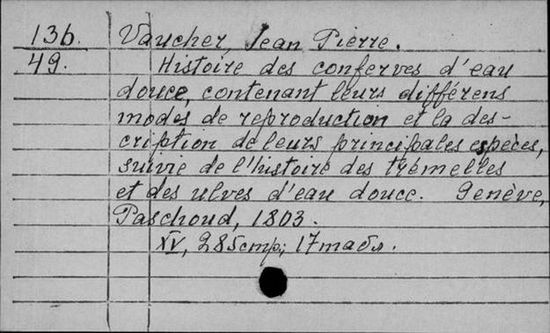 136. Vaucher, Jean Pierre.
49. Histoire des conferves d'eau
douce, contenant leurs différens
modes de reproduction et la des-
cription de leurs principales espèces,
suivie de l'histoire des trémelles
et des ulves d'eau douce. Genève,
Paschoud, 1803.
XV, 285 стр; 17 табл.